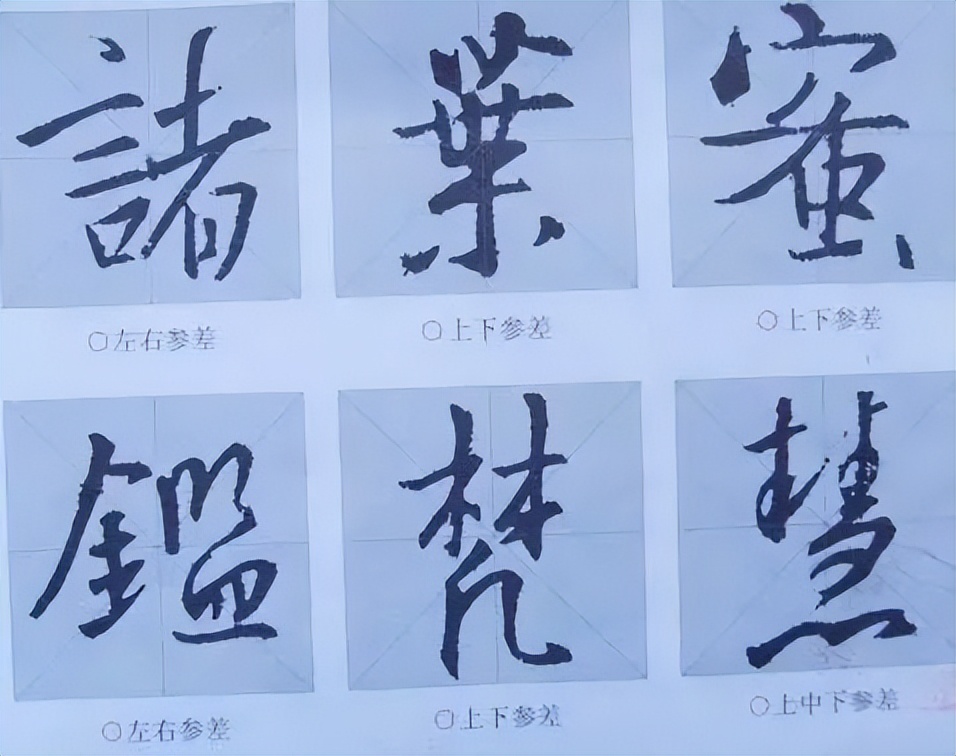 諸 葉 蜜
○左右参差 ○上下参差 ○上下参差
鑑 梵 慧
○左右参差 ○上下参差 ○上中下参差